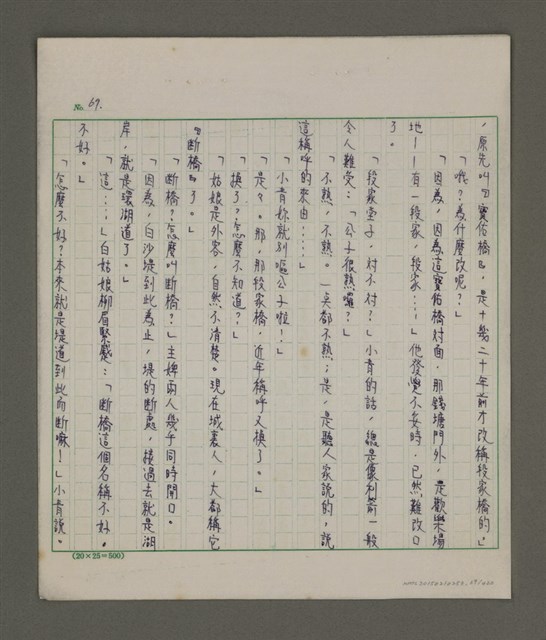 No. 69.
，原先叫『寶佑橋』，是十幾二十年前才改稱段家橋的。」
「哦？為什麼改呢？」
「因為，因為這寶佑橋對面，那錢塘門外，是歡樂場
地——有一段家，段家…」他發覺不妥時，已然難改口
了。
「段家堂子，对不对？」小青的話，總是像利箭一般
令人難受：「公子很熟囉？」
「不熟，不熟。一吳都不熟；是，是聽人家說的，說
這稱呼的來由……」
「小青妳就別嘔公子啦！」
「是々。那，那段家橋，近年稱呼又換了。」
「換了？怎麼不知道？」
「姑娘是外客，自然不清楚。現在城裏人，大都稱它
『斷橋』了。」
「斷橋？怎麼叫斷橋？」主婢兩人幾乎同時開口。
「因為，白沙堤到此為止，堤的斷處，接過去就是湖
岸，就是環湖道了。」
「這…」白姑娘柳眉緊蹙：「斷橋這個名稱不好。
不好。」
「怎麼不好？本來就是堤道到此而斷嘛！」小青說。
(20×25=500)